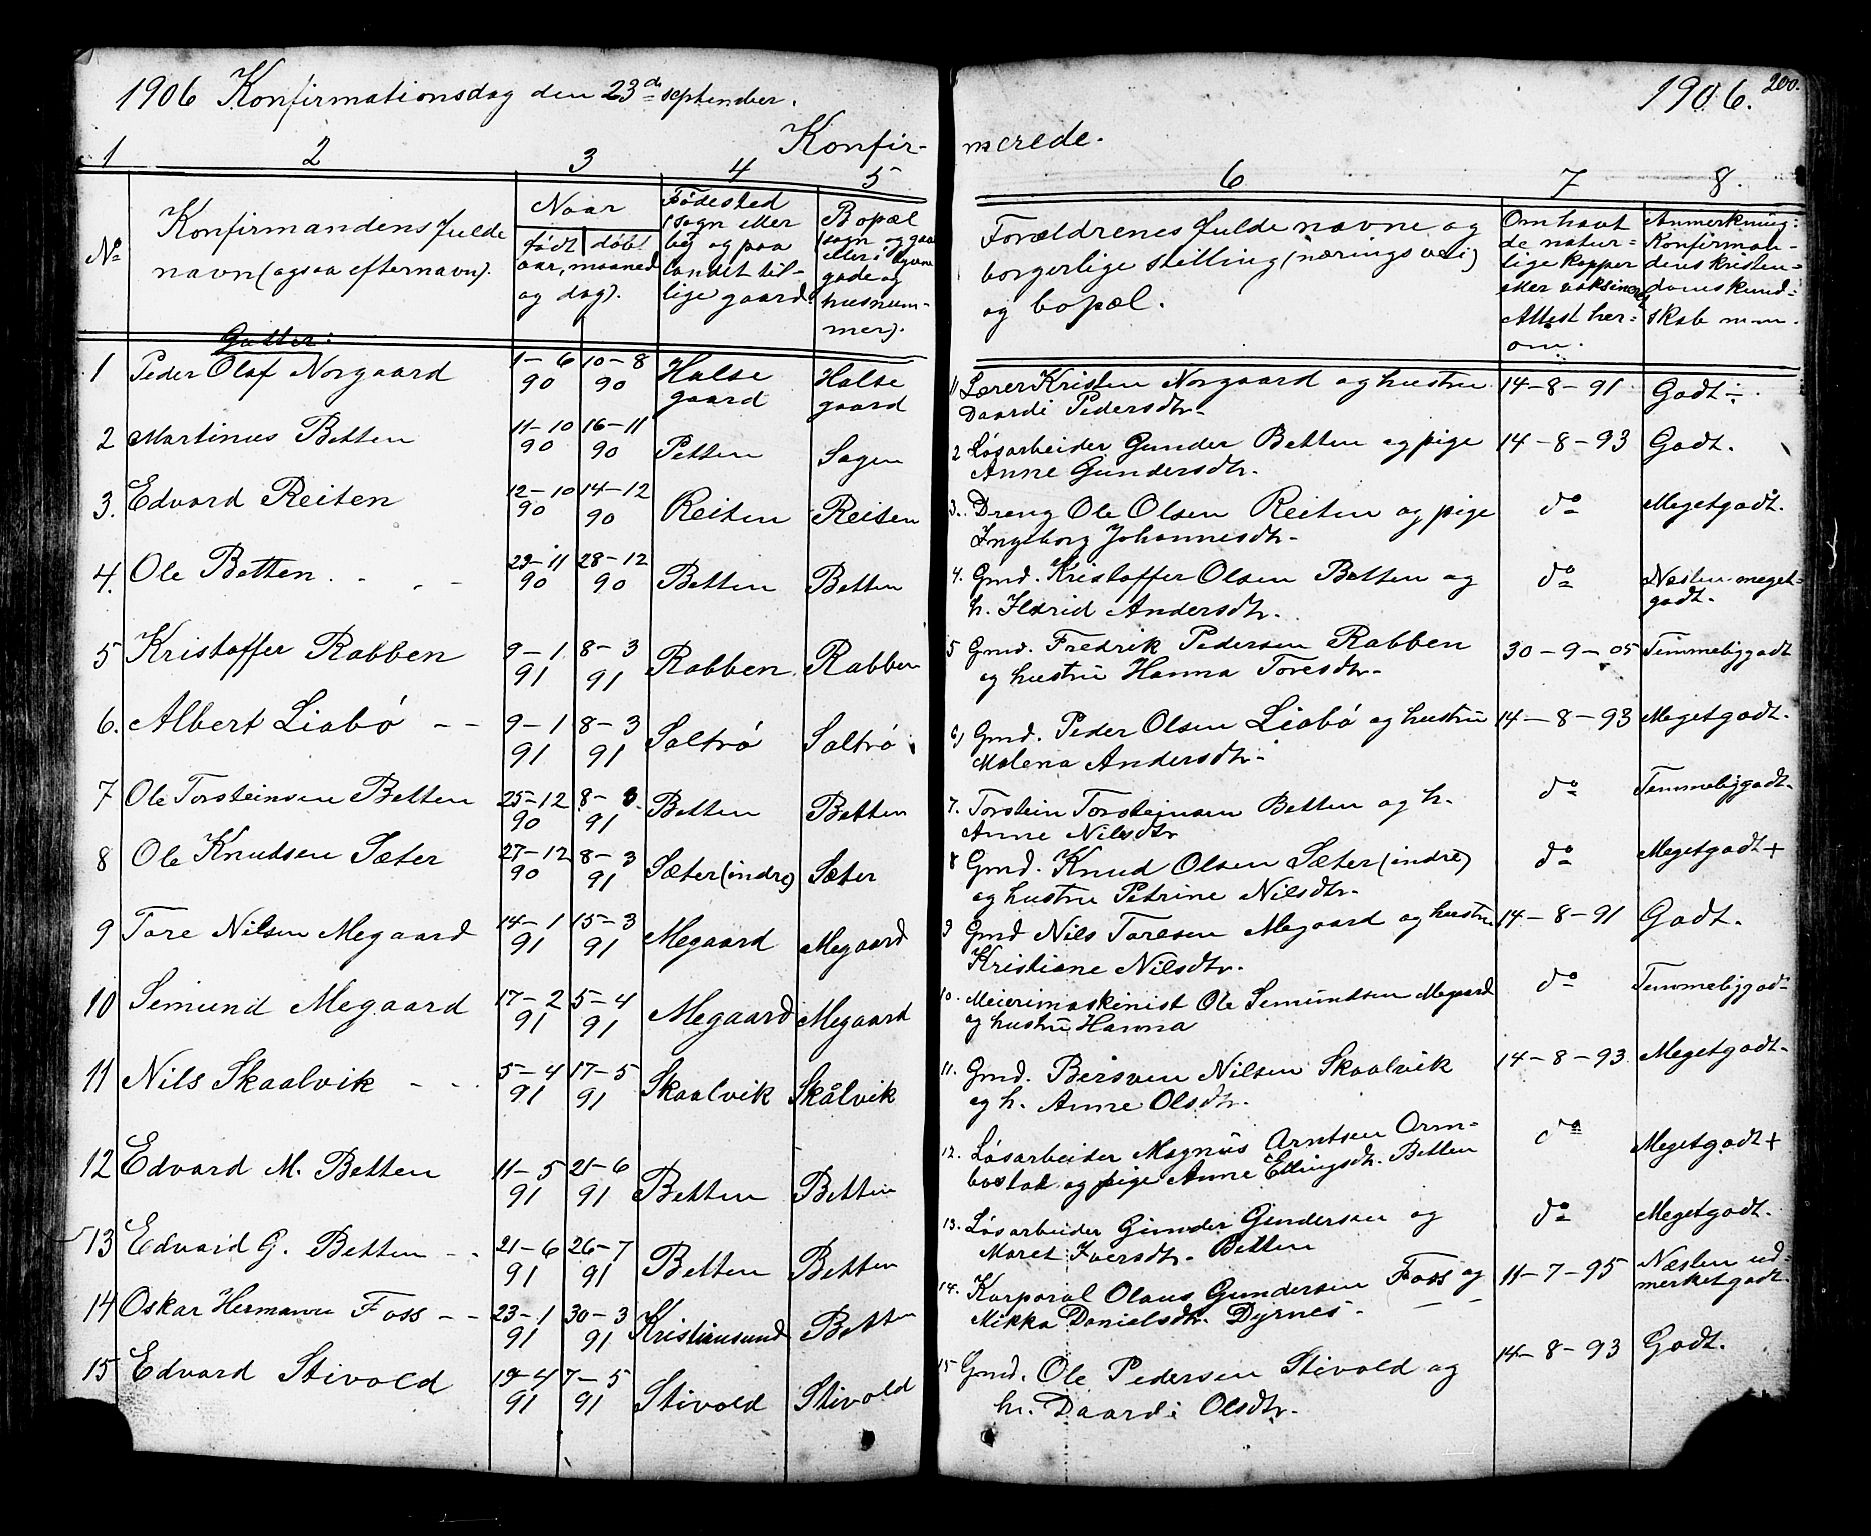 1906 Konfirmationsdag den 23de september.
1906. 200.
Konfir-
merede.
1 2 3 4 5
6 7 8.
No
Konfirmandens fulde
navn (ogsaa efternavn).
Naar
født døbt
aar, maaned
og dag).
Fødested
(sogn eller
by og paa
landet til-
lige gaard.
Bopæl
(sogn og gaa
eller i byen
gade og
husnum-
mer).
Forældrenes fulde navne og
borgerlige stilling (næringsvei)
og bopæl.
Om havt
de natur=
lige kopper
eller vaksineret
Attest her=
om.
Anmerkning:
Konfirman-
dens kristen=
domskund=
skab m.m.
Gutter:
1 Peder Olaf Norgaard 1-6 90 10-8 90 Halse gaard Halse gaard
2 Martinus Betten 11-10 90 16-11 90 Petten Sagen
3. Edvard Reiten 12-10 90 14-12 90 Reiten Reiten
4. Ole Betten. 29-11 90 28-12 90 Betten Betten
5 Kristoffer Rabben 9-1 91 8-3 91 Rabben Rabben
6. Albert Liabø -- 9-1 91 8-3 91 Saltrø Saltrø
7 Ole Torsteinsen Betten 25-12 90 8-3 91 Betten Betten
8 Ole Knudsen Sæter 27-12 90 8-3 91 Sæter (indre) Sæter
9 Tore Nilsen Megaard 14-1 91 15-3 91 Megaard Megaard
10 Semund Megaard 17-2 91 5-4 91 Megaard Megaard
11 Nils Skaalvik - - 5-4 91 17-5 91 Skaalvik Skålvik
12 Edvard M. Betten 11-5 91 21-6 91 Betten Betten
13 Edvard G. Betten - - 21-6 91 26-7 91 Betten Betten
14 Oskar Hermann Foss - - 23-1 91 30-3 91 Kristiansund Betten
15 Edvard Stivold 19-4 91 7-5 91 Stivold Stivold
1) Lærer Kristen Norgaard og hustru 14-8-91 Godt÷
Daardi Pedersdtr-
2 Løsarbeider Gunder Betten og pige 14-8-93 Godt.
Anne Gundersdtr.
3. Dreng Ole Olsen Reiten og pige do Megetgodt.
Ingeborg Johannesdtr-
4. Gmd. Kristoffer Olsen Betten og do Næsten meget=
h. Ildrid Andersdtr. godt.
5 Gmd. Fredrik Pedersen Rabben 30-9-05 Temmeliggodt
og hustru Hanna Toresdtr-
6) Gmd. Peder Olsen Liabø og hustru 14-8-93 Megetgodt.
Malena Andersdtr-
7. Torstein Torsteinsen Betten og h. do Temmeliggodt.
Anne Nilsdtr
8 Gmd. Knud Olsen Sæter (indre) do Megetgodt+
og hustru Petrine Nilsdtr-
9 Gmd Nils Toresen Megaard og hustru 14-8-91 Godt.
Kristiane Nilsdtr.
10. Meierimaskinist Ole Semundsen Megaard do Temmeliggodt
og hustru Hanna
11. Gmd. Bersven Nilsen Skaalvik 14-8-93. Megetgodt.
og h. Anne Olsdtr.
12. Løsarbeider Magnus Arntsen Orm- do Megetgodt+
bostad og pige Anne Ellingsdtr. Betten
13. Løsarbeider Gunder Gundersen og do Megetgodt.
Maret Iversdtr. Betten
14. Korporal Olaus Gundersen Foss og 11-7-95 Næsten ud=
Mikka Danielsdtr. Dyrnes- merketgodt.
15 Gmd. Ole Pedersen Stivold og 14-8-93 Godt.
h. Daardi Olsdtr.